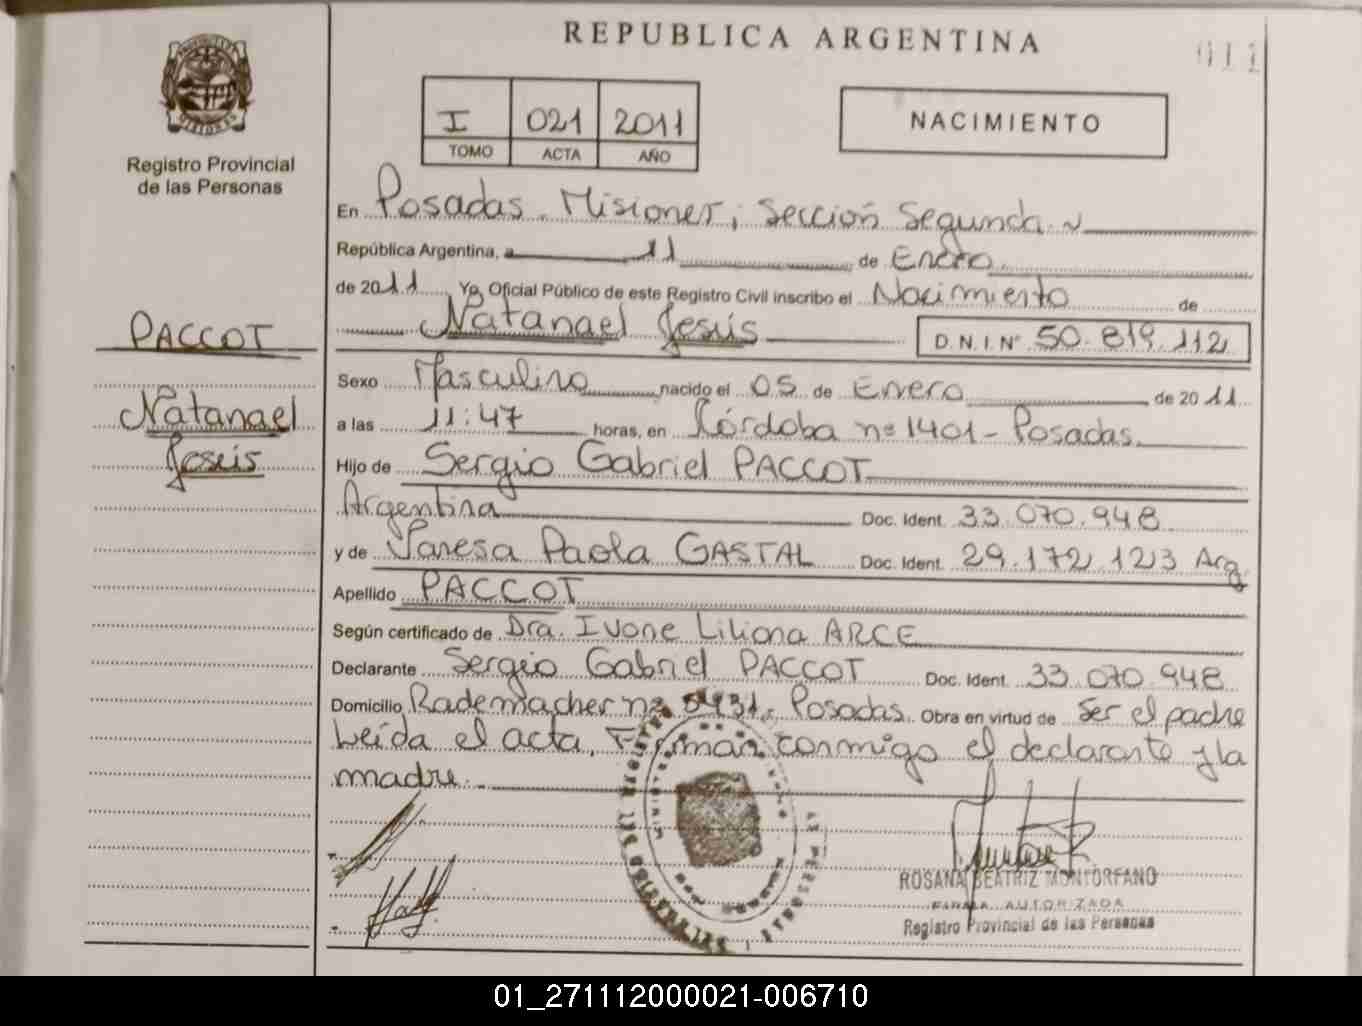 REPUBLICA ARGENTINA
011
PROVINCIA
MISIONES
Registro Provincial
de las Personas
I 021 2011
TOMO ACTA AÑO
NACIMIENTO
En Posadas, Misiones, Sección Segunda
República Argentina, a 11 de Enero
de 2011 Yo, Oficial Público de este Registro Civil inscribo el Nacimiento de
Natanael Jesús D.N.I. N° 50.819.112
PACCOT
Natanael
Jesús
Sexo Masculino nacido el 05 de Enero de 2011
a las 11:47 horas, en Córdoba nº 1401 - Posadas.
Hijo de Sergio Gabriel PACCOT
Argentina Doc. Ident. 33.070.948
y de Vanesa Paola GASTAL Doc. Ident. 29.172.123 Arg.
Apellido PACCOT
Según certificado de Dra. Ivone Liliana ARCE
Declarante Sergio Gabriel PACCOT Doc. Ident. 33.070.948
Domicilio Rademacher nº 5431, Posadas. Obra en virtud de ser el padre
Leída el acta, Firman conmigo el declarante y la
madre.
ROSANA BEATRIZ MONTORFANO
FIRMA AUTORIZADA
Registro Provincial de las Personas
01_271112000021-006710